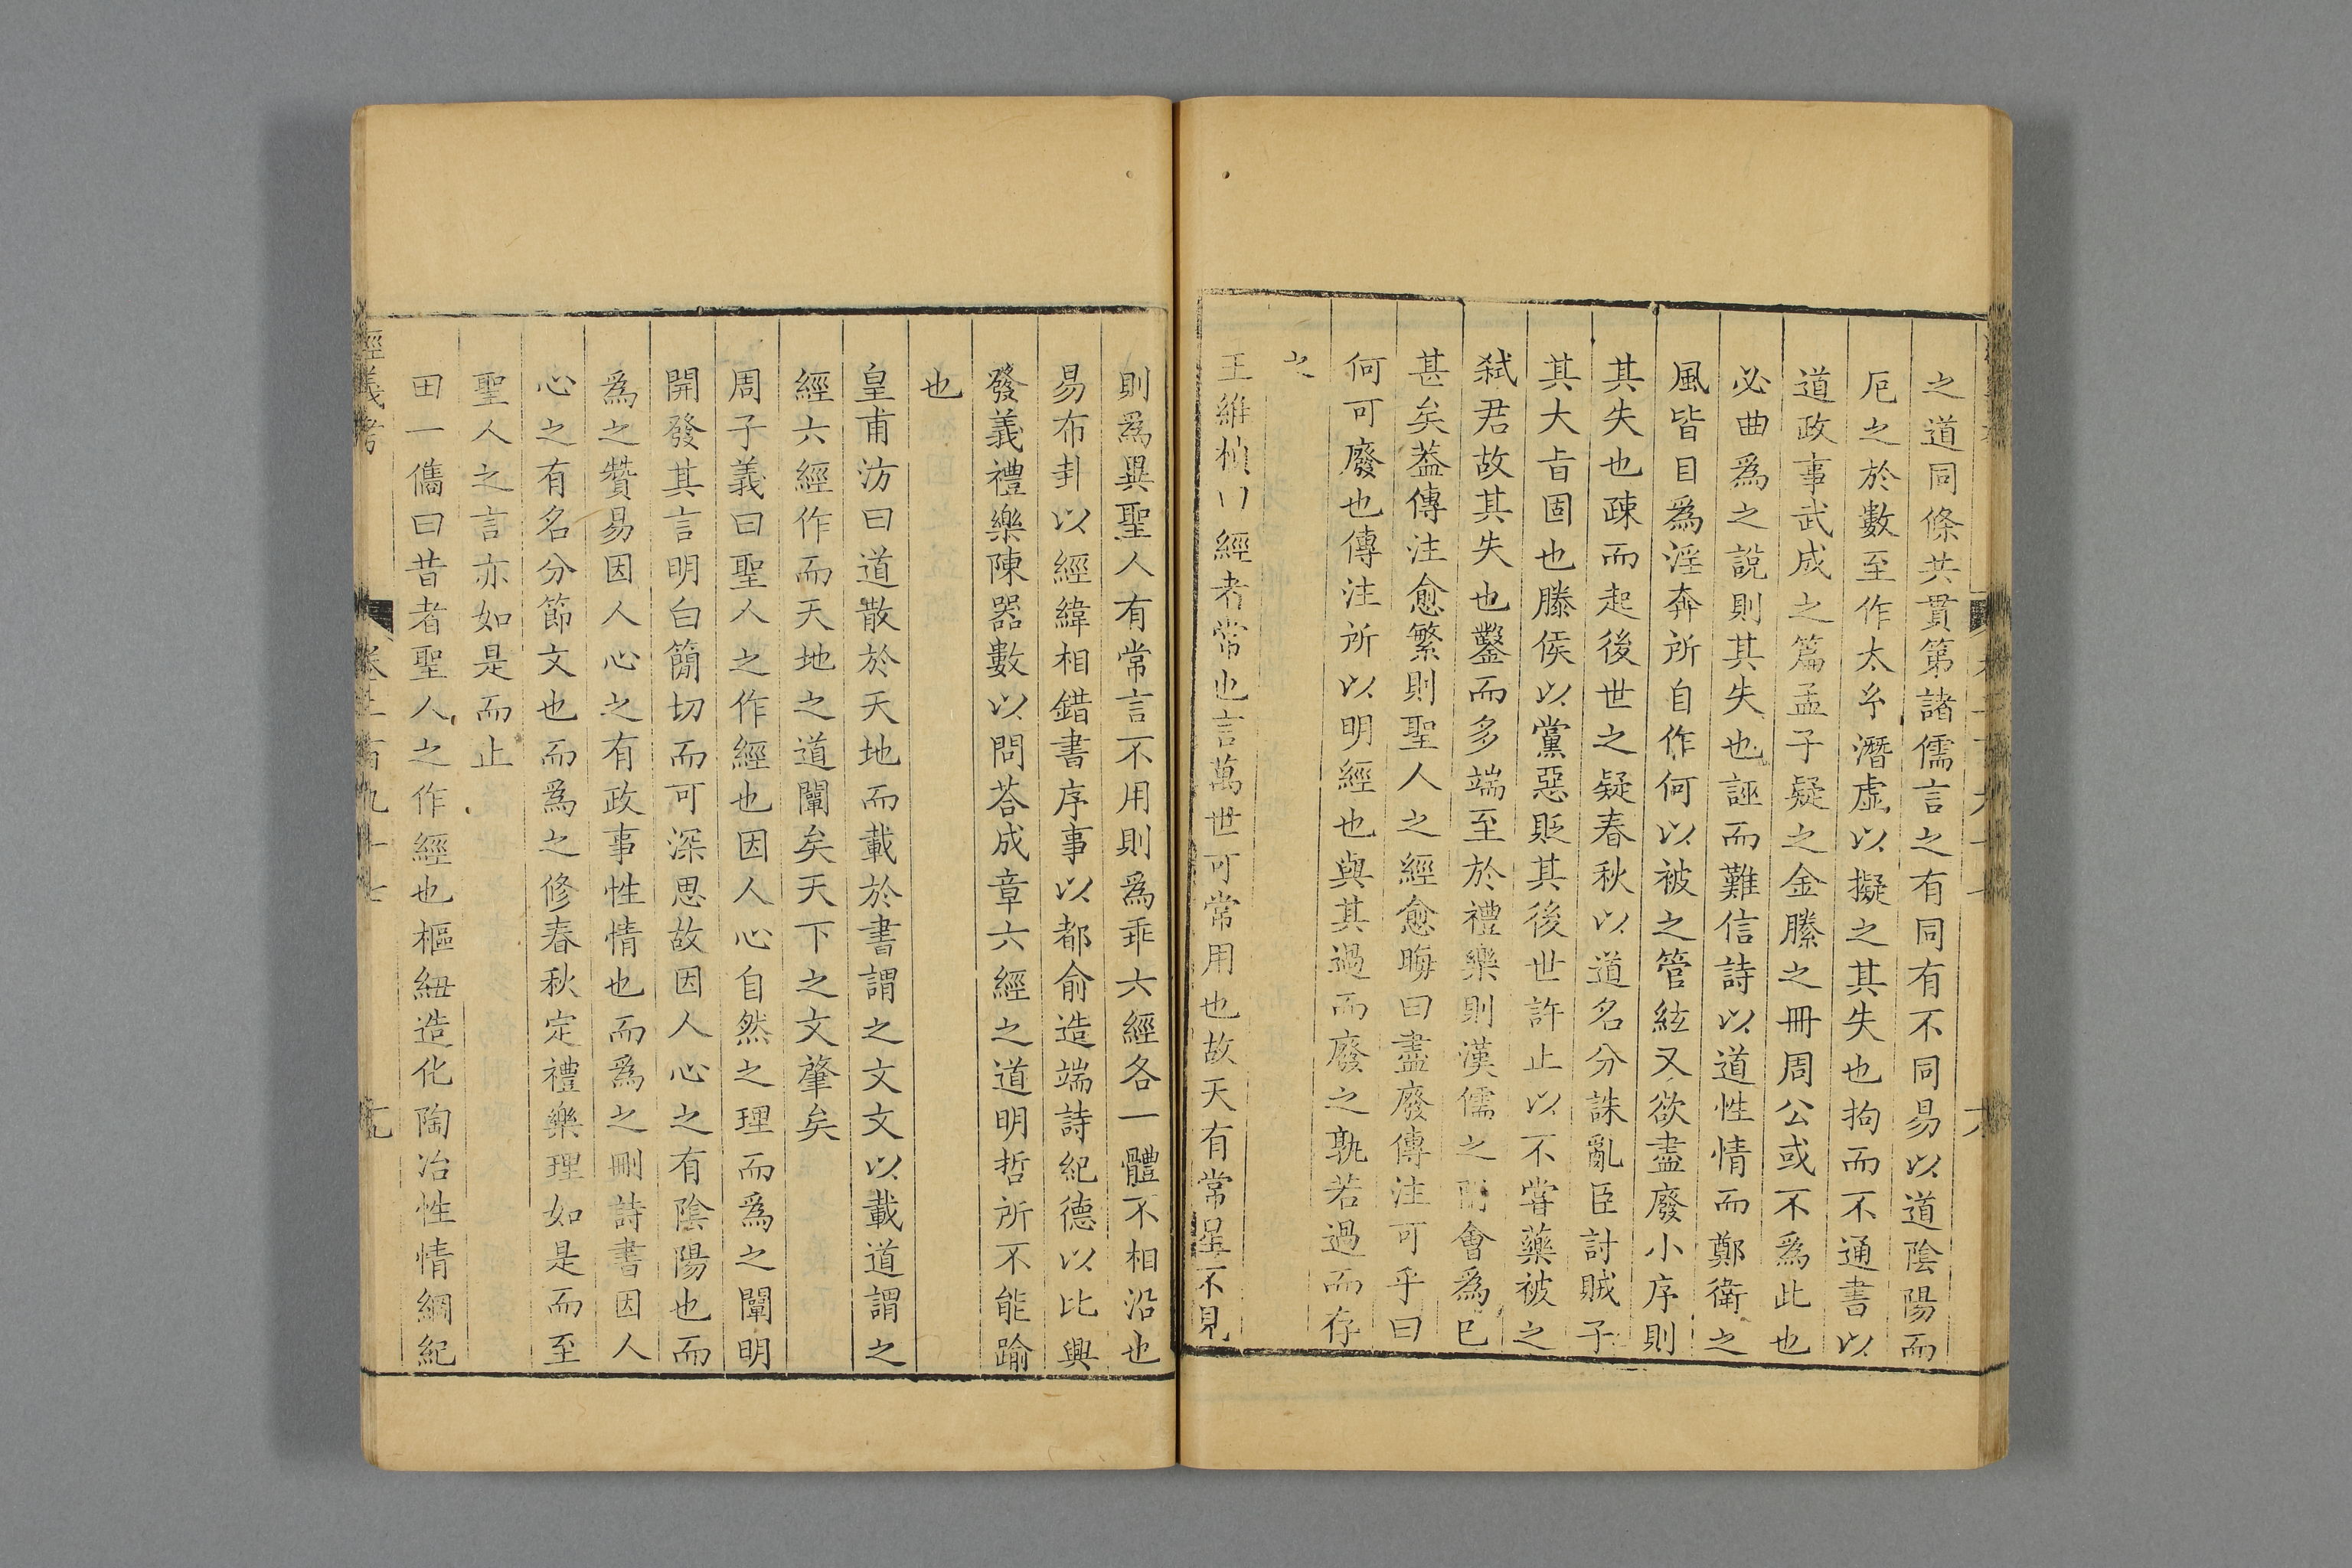 之道同條共貫第諸儒言之有同有不同易以道陰陽而
厄之於數至作太乎潛虛以擬之其失也拘而不通書以
道政事武成之篇孟子疑之金縢之冊周公或不爲此也
必曲爲之說則其失也誣而難信詩以道性情而鄭衛之
風皆目爲淫奔所自作何以被之管絃又欲盡廢小序則
其失也疎而起後世之疑春秋以道名分誅亂臣討賊子
其大旨固也滕侯以黨惡貶其後世許止以不嘗藥被之
弑君故其失也鑿而多端至於禮樂則漢儒之附會爲已
甚矣葢傳注愈繁則聖人之經愈晦曰盡廢傳注可乎曰
何可廢也傳注所以明經也與其過而廢之孰若過而存
之
王維楨曰經者常也言萬世可常用也故天有常星不見
則爲異聖人有常言不用則爲乖六經各一體不相沿也
易布卦以經緯相錯書序事以都俞造端詩紀德以比興
發義禮樂陳器數以問荅成章六經之道明哲所不能踰
也
皇甫汸曰道散於天地而載於書謂之文文以載道謂之
經六經作而天地之道闡矣天下之文肇矣
周子義曰聖人之作經也因人心自然之理而爲之闡明
開發其言明白簡切而可深思故因人心之有陰陽也而
爲之贊易因人心之有政事性情也而爲之刪詩書因人
心之有名分節文也而爲之修春秋定禮樂理如是而至
聖人之言亦如是而止
田一儁曰昔者聖人之作經也樞紐造化陶冶性情綱紀
經義考 卷二百九十七